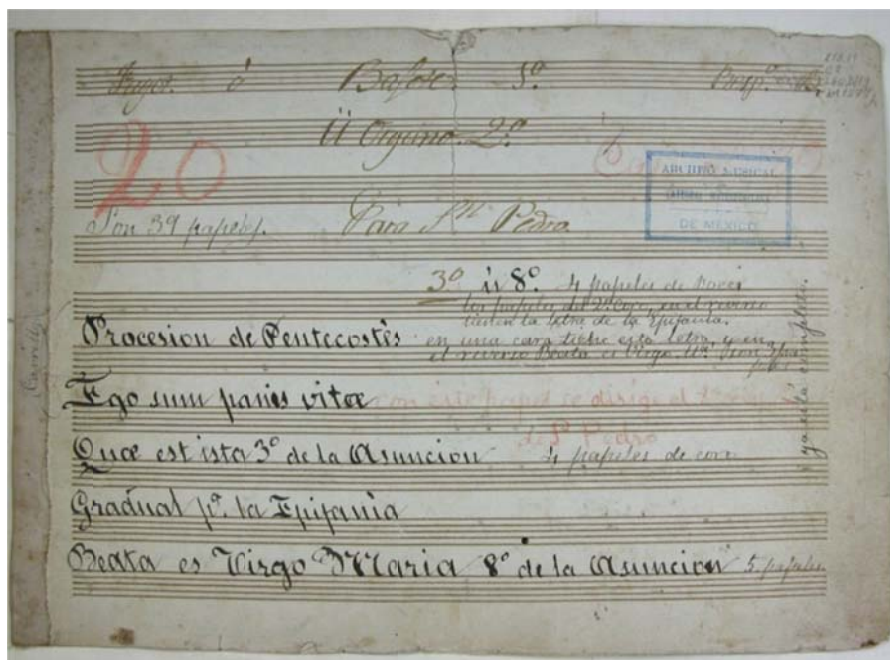 Fagot. ó Bajo
Ú Organo. 2º
20
ARCHIVO MUSICAL
DE MEXICO
Son 39 papeles. Para Sn. Pedro.
3º ú 8º. 4 papeles de voces
los papeles de 2º Coro, en el reverso
tienen la letra de la Epifania.
Procesion de Pentecostés en una cara tiene esta letra, y en
el reverso Beata es Virgo Mª. Son
Ego sum panis vitæ con este papel se dirige el
de Sn. Pedro
Quæ est ista 3º de la Asuncion 4 papeles de coro
Gradual pª. la Epifania
Beata es Virgo Maria 8º de la Asuncion 5 papeles
ya está completo.